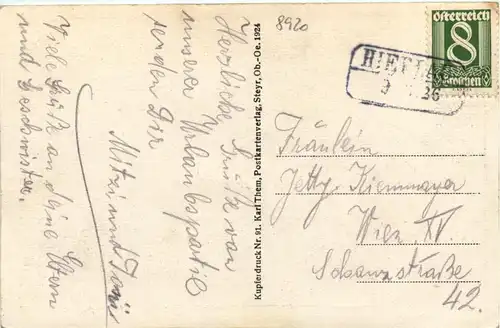 8920
Herzliche Grüße von
unserer Urlaubspartie
senden Dir
Mitzi und
Viele Grüße an deine Eltern
und Geschwister.
Kupferdruck Nr. 91. Karl Them, Postkartenverlag, Steyr, Ob.-Oe. 1924
Österreich
8
Groschen
HIEFLAU
26
Fräulein
Jetty
Wien, XV.
Schanzstraße
42.